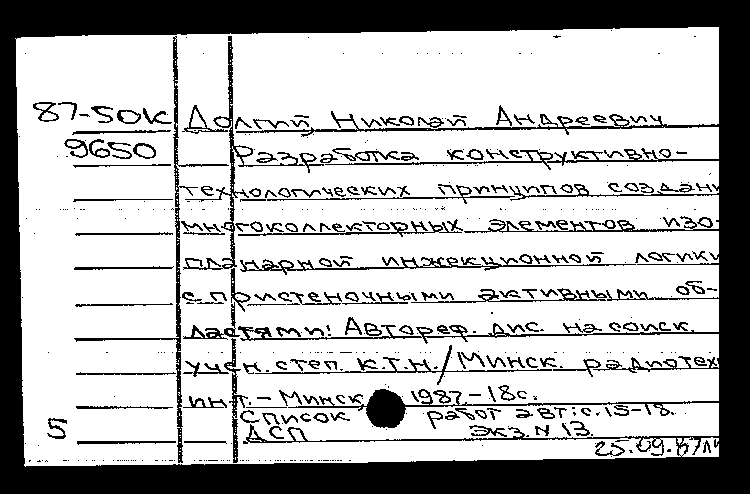 87-50К Долгий, Николай Андреевич
9650 Разработка конструктивно-
технологических принципов создани
многоколлекторных элементов изо-
планарной инжекционной логики
с пристеночными активными об-
ластями: Автореф. дис. на соиск.
учен. степ. к.т.н./Минск. радиотех
ин-т.- Минск, 1987.-18с.
Список работ авт: с.15-18.
5 ДСП Экз. N 13
25.09.87